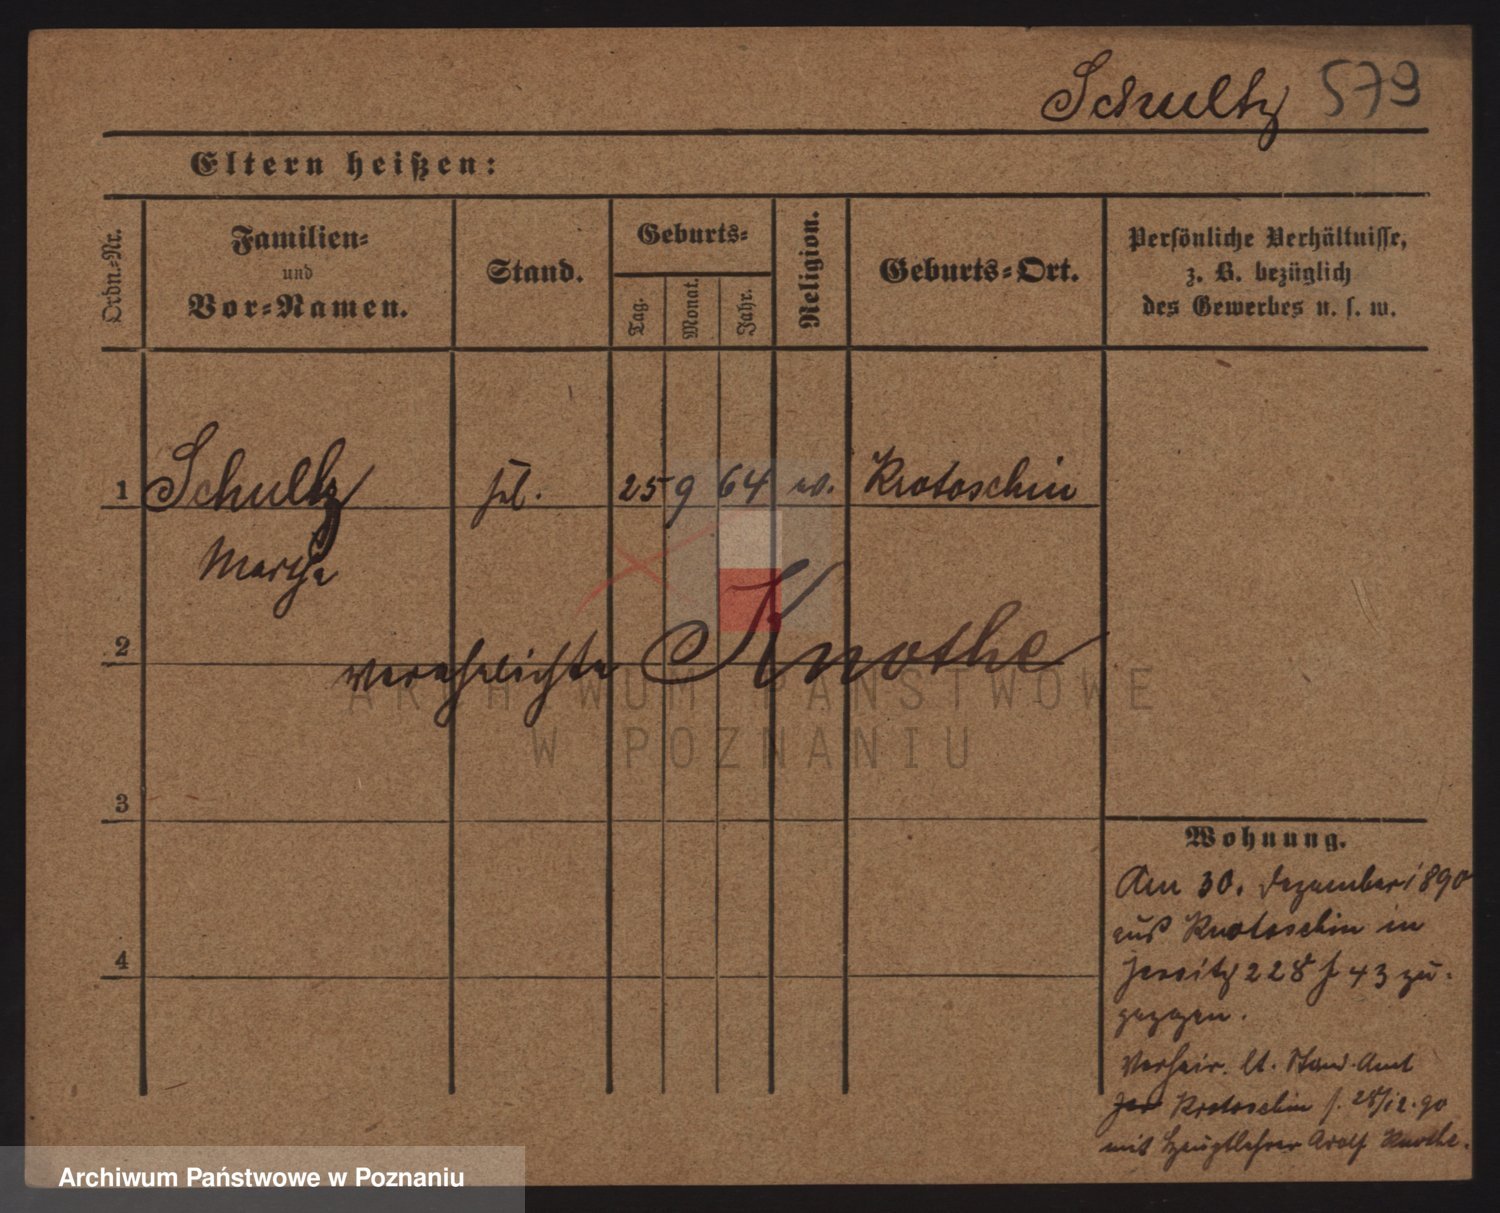 Schultz 579
Eltern heißen:
Ordn.-Nr.
Familien- und Vor-Namen.
Stand.
Geburts-
Tag.
Monat.
Jahr.
Religion.
Geburts-Ort.
Persönliche Verhältnisse,
z. B. bezüglich
des Gewerbes u. s. w.
1 Schultz frl. 25 9 64 ev. Krotoschin
Martha
2
verehelichte Knothe
ARCHIWUM PAŃSTWOWE
W POZNANIU
3
4
Wohnung.
Am 30. Dezember 1890
aus Krotoschin in
Jersitz 228 43 zu-
gezogen.
Verheir. lt. Stand. Amt
Jer Krotoschin 28/12.90
mit Adolf Knothe.
Archiwum Państwowe w Poznaniu